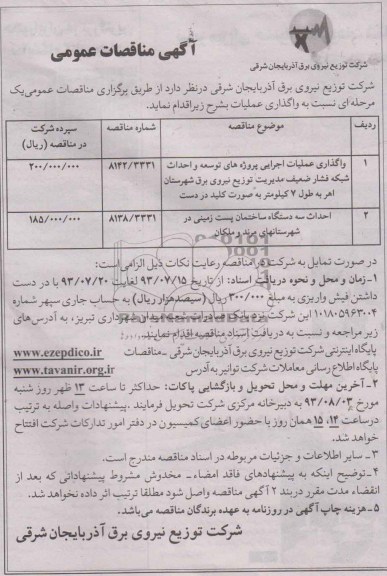 آگهی مناقصات عمومی
شرکت توزیع نیروی برق آذربایجان شرقی
شرکت توزیع نیروی برق آذربایجان شرقی درنظر دارد از طریق برگزاری مناقصات عمومی یک
مرحله ای نسبت به واگذاری عملیات بشرح زیر اقدام نماید.
ردیف موضوع مناقصه شماره مناقصه سپرده شرکت در مناقصه (ریال)
۱ واگذاری عملیات اجرایی پروژه های توسعه و احداث ۸۱۴۲/۳۳۳۱ ۲۰۰/۰۰۰/۰۰۰
شبکه فشار ضعیف مدیریت توزیع نیروی برق شهرستان
اهر به طول ۷ کیلومتر به صورت کلید در دست
۲ احداث سه دستگاه ساختمان پست زمینی در ۸۱۳۸/۳۳۳۱ ۱۸۵/۰۰۰/۰۰۰
شهرستانهای مرند و ملکان
در صورت تمایل به شرکت در مناقصه رعایت نکات ذیل الزامی است:
۱-زمان و محل و نحوه دریافت اسناد: از تاریخ ۹۳/۰۷/۱۵ لغایت ۹۳/۰۷/۲۰ با در دست
داشتن فیش واریزی به مبلغ ۳۰۰/۰۰۰ ریال (سیصدهزار ریال) به حساب جاری سپهر شماره
۰۱۰۱۸۰۵۹۶۳۰۰۴ این شرکت نزد بانک صادرات شهرداری تبریز، به آدرس های
زیر مراجعه و نسبت به دریافت اسناد مناقصه اقدام نمایند.
پایگاه اینترنتی شرکت توزیع نیروی برق آذربایجان شرقی -مناقصات www.ezepdico.ir
پایگاه اطلاع رسانی معاملات شرکت توانیر به آدرس www.tavanir.org.ir
۲- آخرین مهلت و محل تحویل و بازگشایی پاکات: حداکثر تا ساعت ۱۳ ظهر روز شنبه
مورخ ۹۳/۰۸/۰۳ به دبیرخانه مرکزی شرکت تحویل فرمایند. پیشنهادات واصله به ترتیب
درساعت ۱۴، ۱۵ همان روز با حضور اعضای کمیسیون در دفتر امور تدارکات شرکت افتتاح
خواهد شد.
۳- سایر اطلاعات و جزئیات مربوطه در اسناد مناقصه مندرج است.
۴-توضیح اینکه به پیشنهادهای فاقد امضاء- مخدوش مشروط پیشنهاداتی که بعد از
انقضاء مدت مقرر دربند ۲ آگهی مناقصه واصل شود مطلقا ترتیب اثر داده نخواهد شد.
۵-هزینه چاپ آگهی در روزنامه به عهده برندگان مناقصه می باشد.
شرکت توزیع نیروی برق آذربایجان شرقی